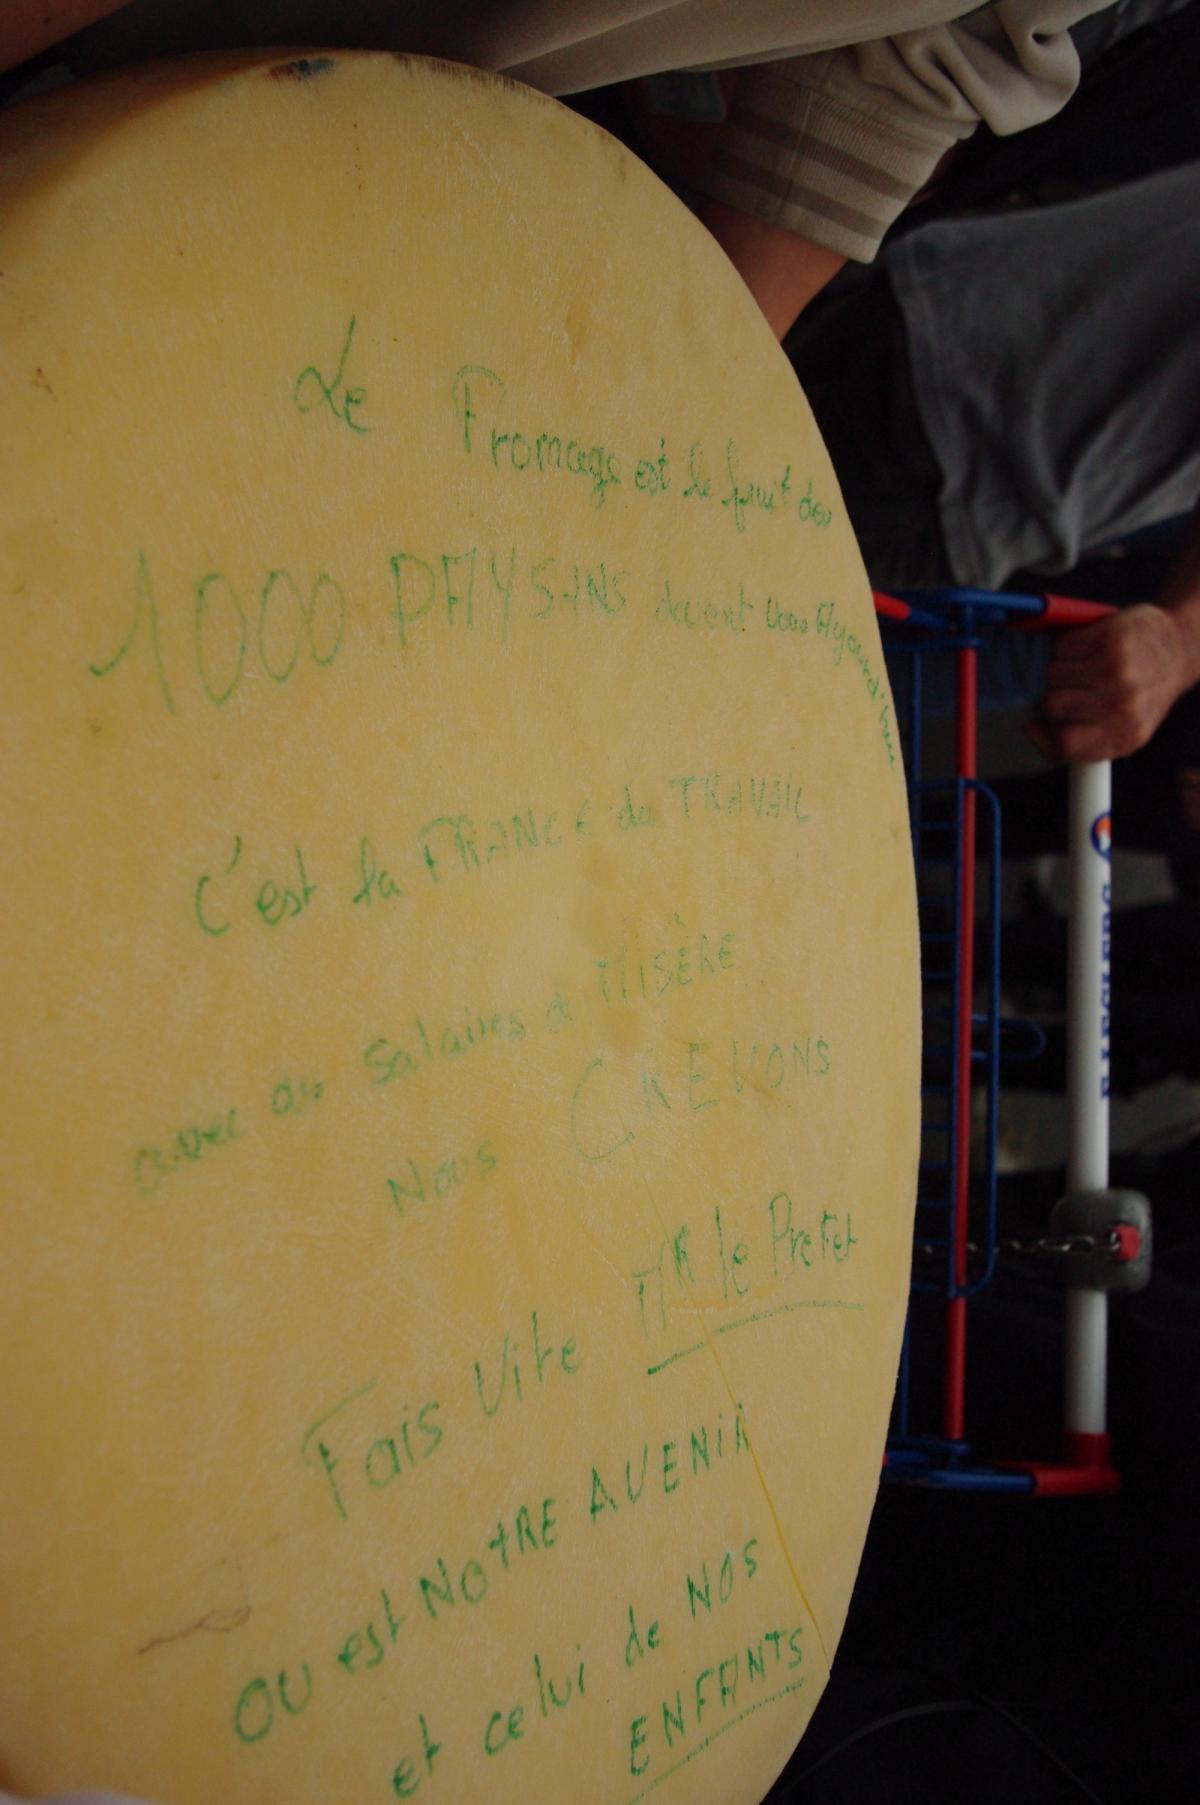 Le Fromage est le fruit des
1000 PAYSANS devant vous Ajourd'hui
C'est la FRANCE du TRAVAIL
avec des Salaires de MISÈRE
Nous CREVONS
Fais Vite Mr le Prefet
OU est NOTRE AVENIR
et celui de NOS
ENFANTS
E.LECLERC